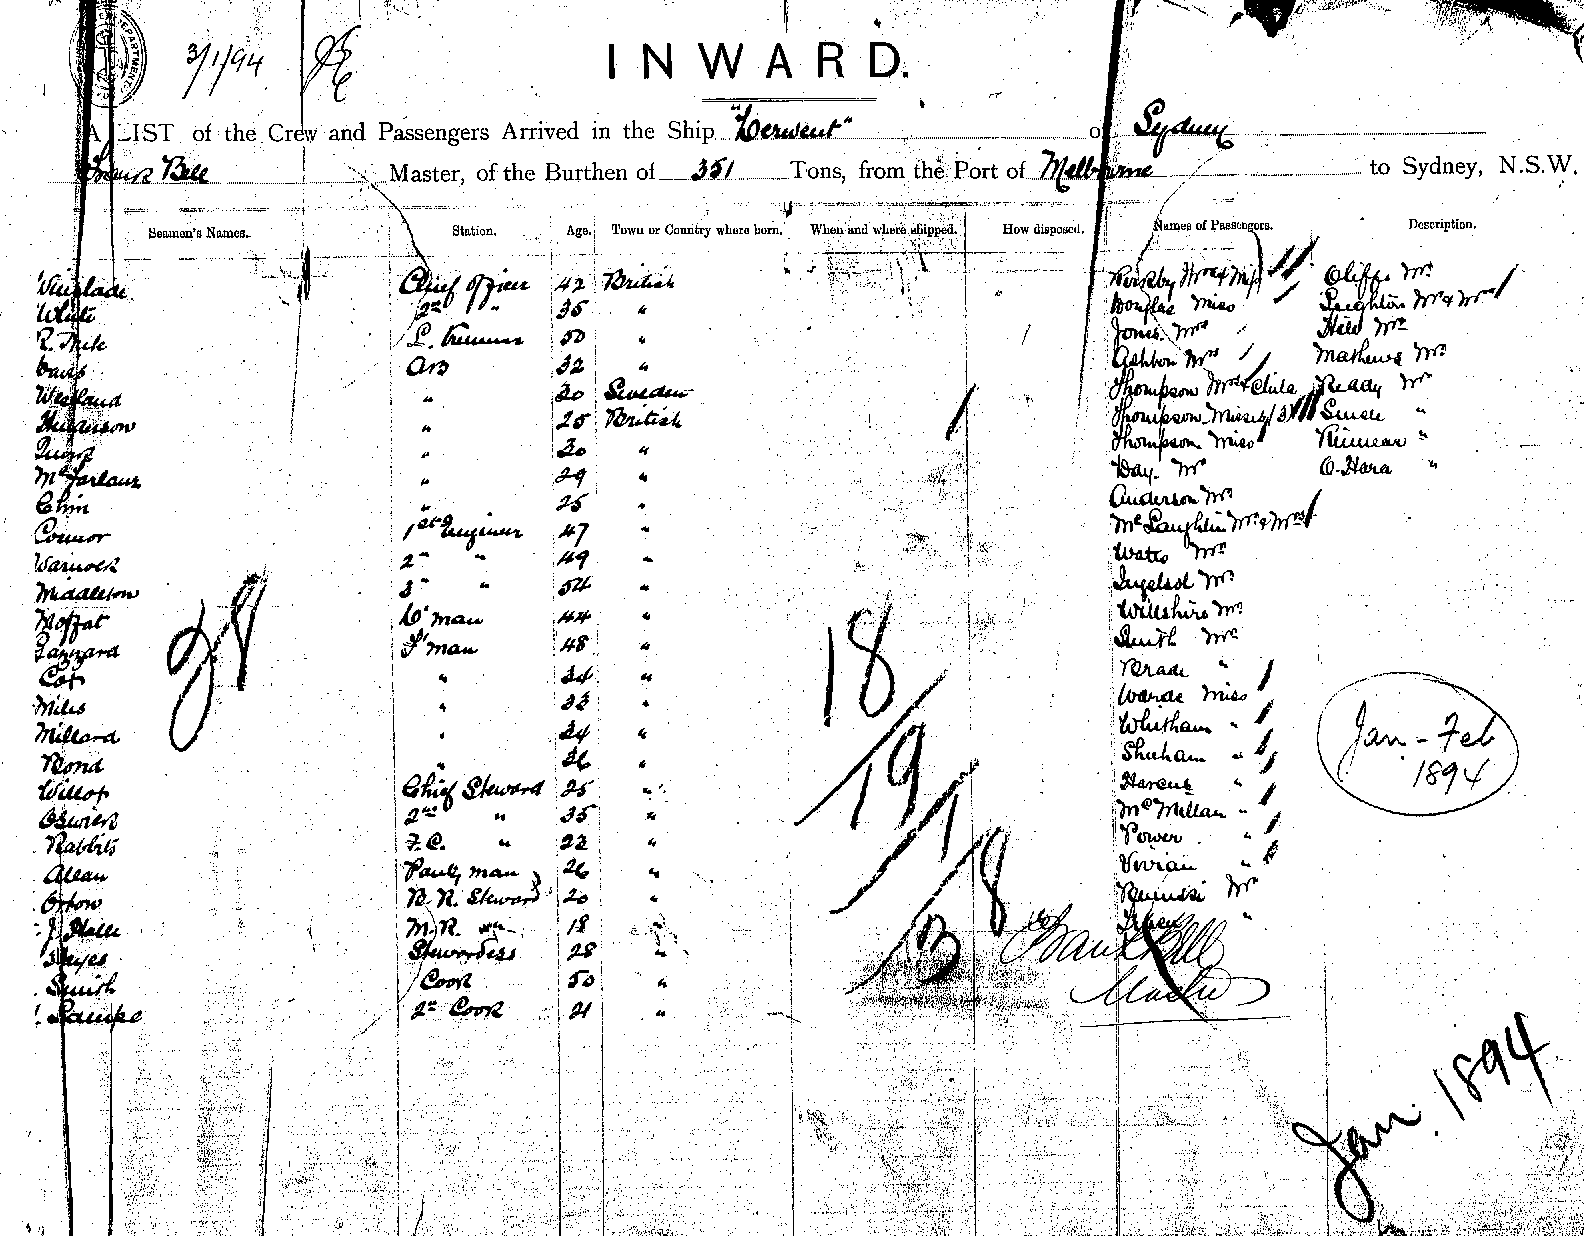 3/1/94
INWARD.
A LIST of the Crew and Passengers Arrived in the Ship "Derwent" of Sydney
Frank Bell Master, of the Burthen of 351 Tons, from the Port of Melbourne to Sydney, N.S.W.
Seamen's Names. Station. Age. Town or Country where born. When and where shipped. How disposed. Names of Passengers. Description.
Chief Officer 42 British Cliffe Mr
White 2nd " 35 " Douglas Miss Leighton Mr & Mrs
50 " Jones Mrs Hill Mr
Davis AB 32 " Ashton Mrs Mathews Mr
Westland " 30 Sweden Thompson Mrs & Child Ready Mr
Henderson " 25 British Thompson Misses /3/ "
" 30 " Thompson Miss Kinnear "
McFarlane " 29 " Day Mr O'Hara "
Chin " 25 " Anderson Mr
Connor 1st Engineer 47 " McLaughlin Mr & Mrs
Warnock 2nd " 49 " Watts Mr
Middleton 3rd " 54 " Mr
Moffat D'man 44 " Willshire Mr
Gazzard F'man 48 " Smith Mr
Cox " 34 " Brade "
Miles " 33 " Warde Miss
Millard " 34 " Whitham "
Bond " 36 " "
Chief Steward 25 " Harcus "
2nd " 35 " McMillan "
Rabbits F.C. " 22 " Power "
Allan Pantry man 26 " Vivian "
Orton B.R. Steward 20 " Mr
J. Hall M.R. " 18 " "
Hayes Stewardess 28 "
Smith Cook 50 "
Lampe 2nd Cook 21 "
28
18
19
1
8
13
Frank Bell
Master
Jan - Feb
1894
Jan. 1894